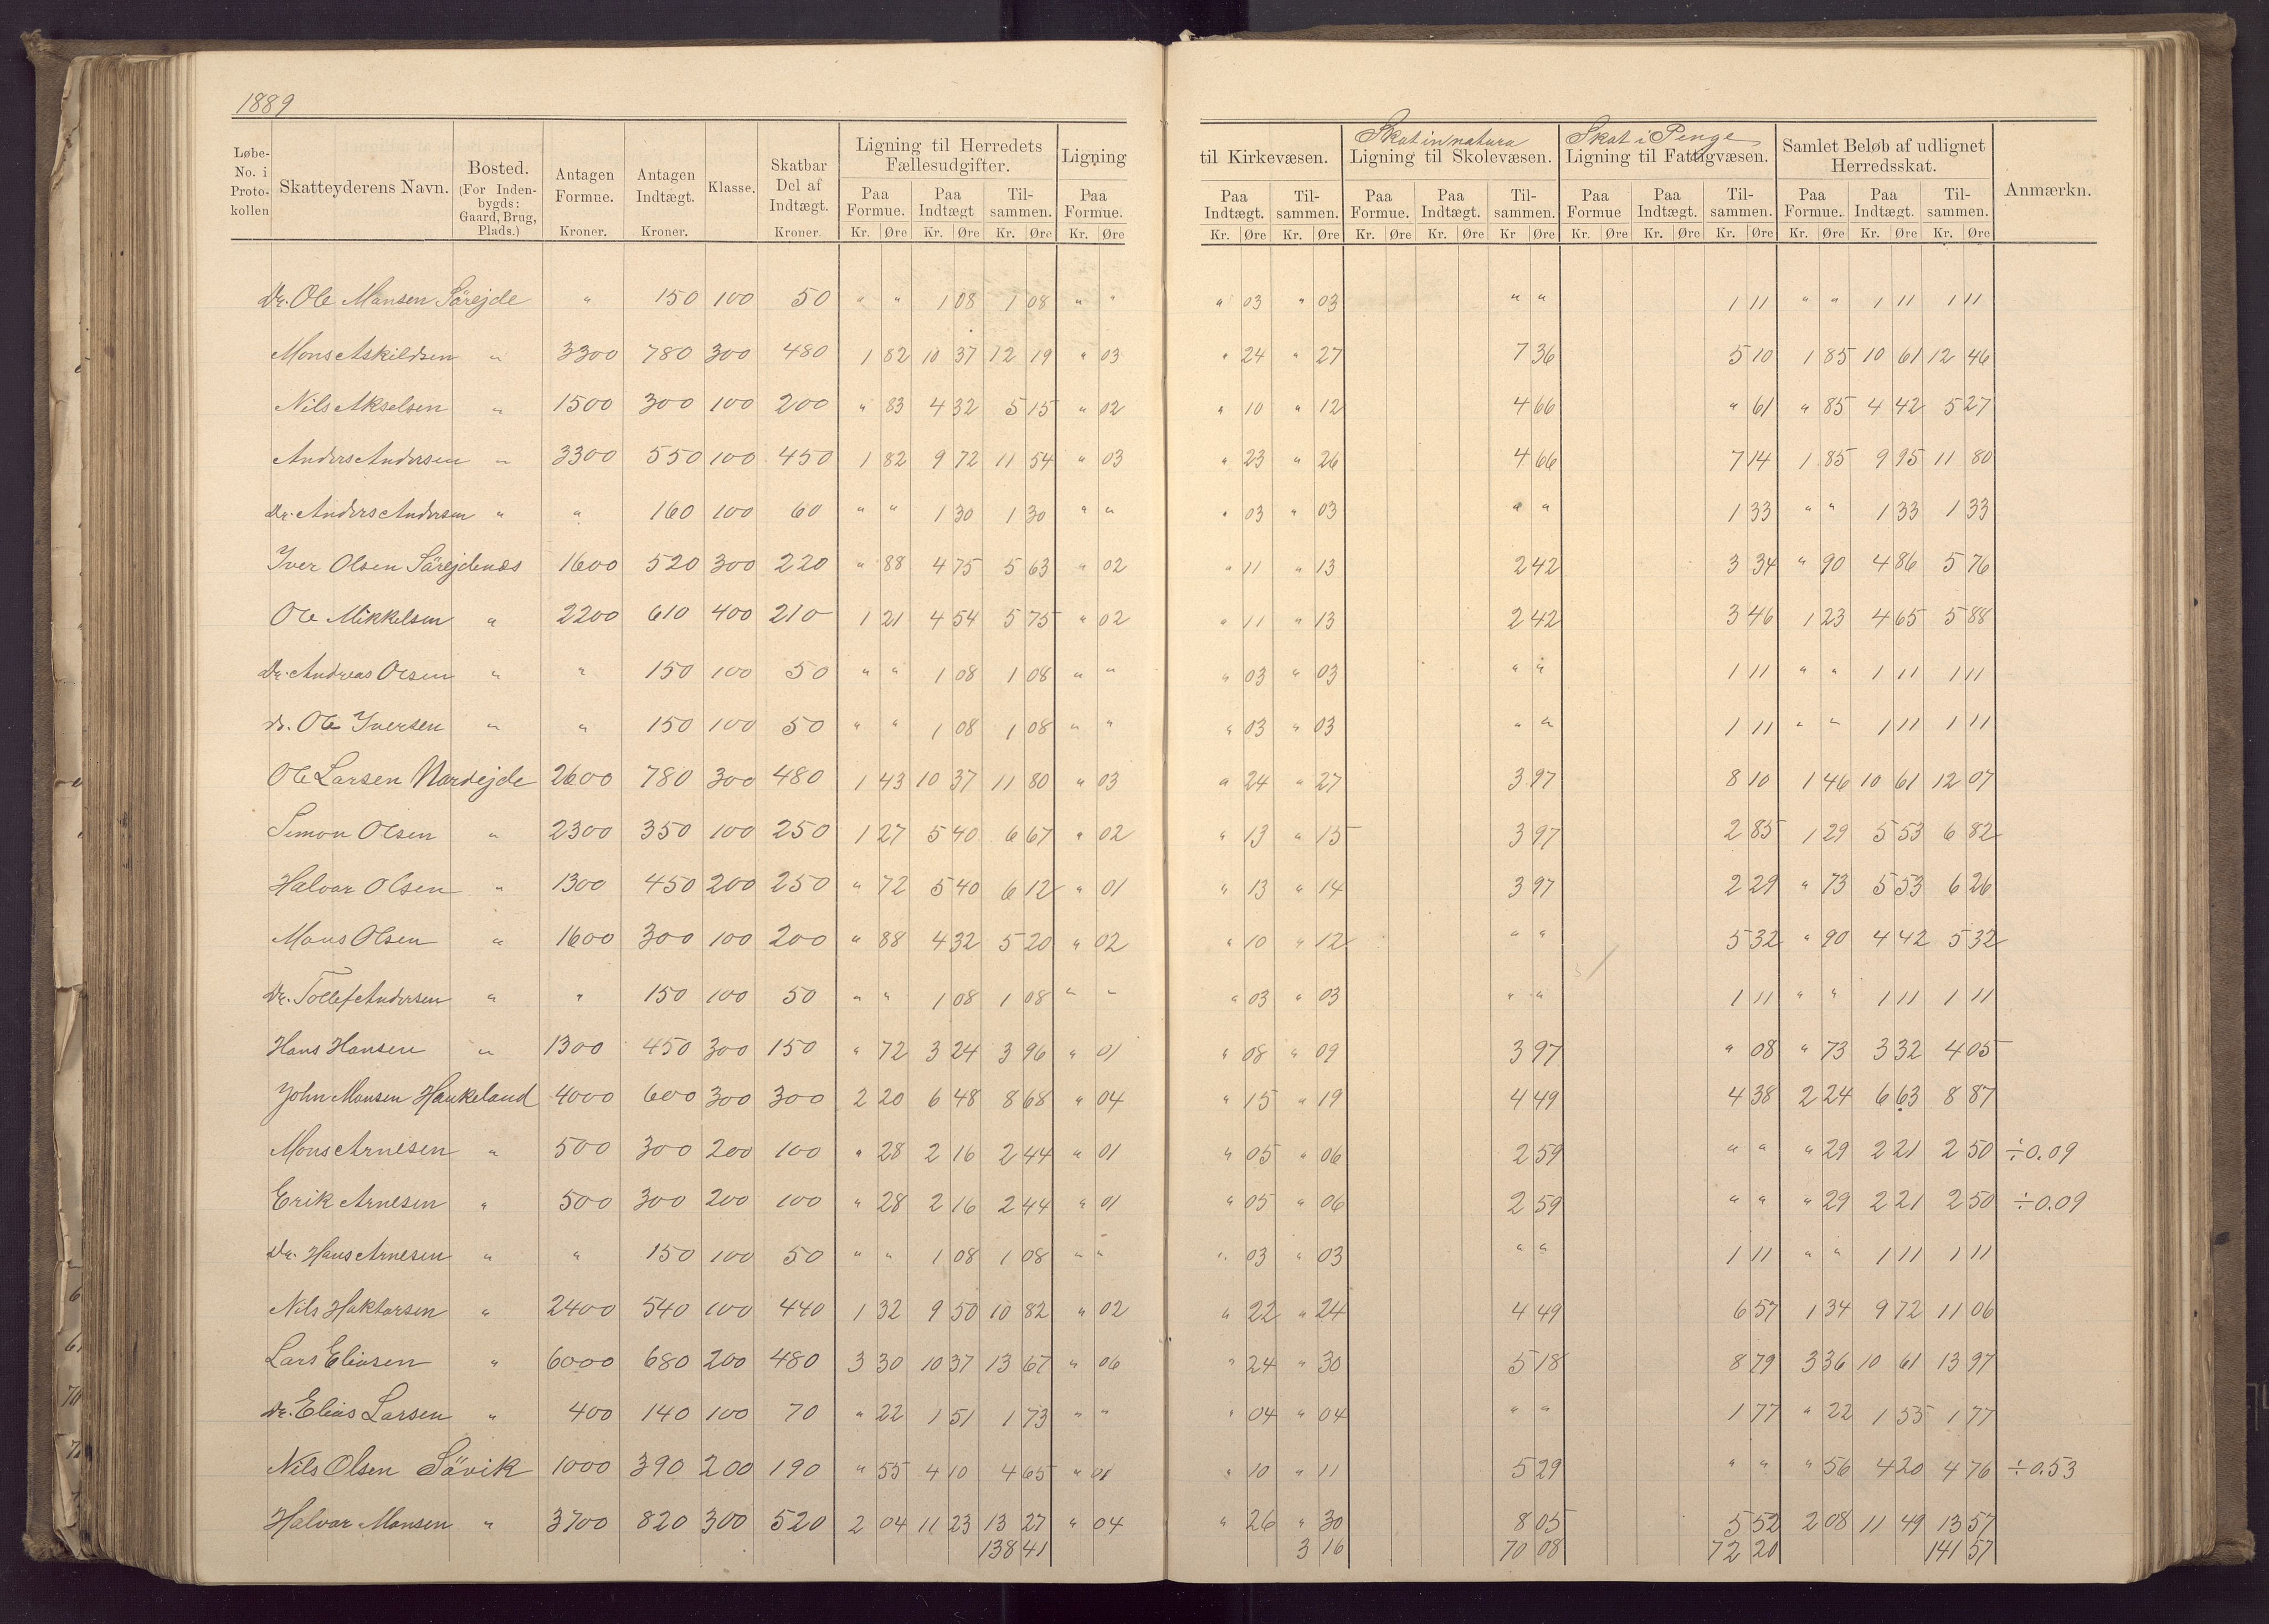 1889
Løbe-No. i Protokollen | Skatteyderens Navn. | Bosted. (For Indenbygds: Gaard, Brug, Plads.) | Antagen Formue. Kroner. | Antagen Indtægt. Kroner. | Klasse. | Skatbar Del af Indtægt. Kroner. | Ligning til Herredets Fællesudgifter. Paa Formue. Kr. Øre | Paa Indtægt Kr. Øre | Tilsammen. Kr. Øre | Ligning Paa Formue. Kr. Øre | til Kirkevæsen. Paa Indtægt. Kr. Øre | Tilsammen. Kr. Øre | Skat in natura Ligning til Skolevæsen. Paa Formue. Kr. Øre | Paa Indtægt. Kr. Øre | Tilsammen. Kr Øre | Skat i Penge Ligning til Fattigvæsen. Paa Formue Kr. Øre | Paa Indtægt. Kr. Øre | Tilsammen. Kr. Øre | Samlet Beløb af udlignet Herredsskat. Paa Formue. Kr. Øre | Paa Indtægt. Kr. Øre | Tilsammen. Kr. Øre | Anmærkn.
Dr. Ole Monsen Sörejde " 150 100 50 " " 1 08 1 08 " " " 03 " 03 " " 1 11 " " 1 11 1 11
Mons Askildsen " 3300 780 300 480 1 82 10 37 12 19 " 03 " 24 " 27 7 36 5 10 1 85 10 61 12 46
Nils Akselsen " 1500 300 100 200 " 83 4 32 5 15 " 02 " 10 " 12 4 66 " 61 " 85 4 42 5 27
Anders Andersen " 3300 550 100 450 1 82 9 72 11 54 " 03 " 23 " 26 4 66 7 14 1 85 9 95 11 80
Dr. Anders Andersen " " 160 100 60 " " 1 30 1 30 " " " 03 " 03 " " 1 33 " " 1 33 1 33
Iver Olsen Sörejdenæs 1600 520 300 220 " 88 4 75 5 63 " 02 " 11 " 13 2 42 3 34 " 90 4 86 5 76
Ole Mikkelsen " 2200 610 400 210 1 21 4 54 5 75 " 02 " 11 " 13 2 42 3 46 1 23 4 65 5 88
Dr. Andreas Olsen " " 150 100 50 " " 1 08 1 08 " " " 03 " 03 " " 1 11 " " 1 11 1 11
Dr. Ole Iversen " " 150 100 50 " " 1 08 1 08 " " " 03 " 03 " " 1 11 " " 1 11 1 11
Ole Larsen Nordejde 2600 780 300 480 1 43 10 37 11 80 " 03 " 24 " 27 3 97 8 10 1 46 10 61 12 07
Simon Olsen " 2300 350 100 250 1 27 5 40 6 67 " 02 " 13 " 15 3 97 2 85 1 29 5 53 6 82
Halvor Olsen " 1300 450 200 250 " 72 5 40 6 12 " 01 " 13 " 14 3 97 2 29 " 73 5 53 6 26
Mons Olsen " 1600 300 100 200 " 88 4 32 5 20 " 02 " 10 " 12 " " 5 32 " 90 4 42 5 32
Dr. Tollef Andersen " " 150 100 50 " " 1 08 1 08 " " " 03 " 03 " " 1 11 " " 1 11 1 11
Hans Hansen " 1300 450 300 150 " 72 3 24 3 96 " 01 " 08 " 09 3 97 " 08 " 73 3 32 4 05
John Monsen Haukeland 4000 600 300 300 2 20 6 48 8 68 " 04 " 15 " 19 4 49 4 38 2 24 6 63 8 87
Mons Arnesen " 500 300 200 100 " 28 2 16 2 44 " 01 " 05 " 06 2 59 " " " 29 2 21 2 50 ÷0.09
Erik Arnesen " 500 300 200 100 " 28 2 16 2 44 " 01 " 05 " 06 2 59 " " " 29 2 21 2 50 ÷0.09
Dr. Hans Arnesen " " 150 100 50 " " 1 08 1 08 " " " 03 " 03 " " 1 11 " " 1 11 1 11
Nils Haktorsen " 2400 540 100 440 1 32 9 50 10 82 " 02 " 22 " 24 4 49 6 57 1 34 9 72 11 06
Lars Eliasen " 6000 680 200 480 3 30 10 37 13 67 " 06 " 24 " 30 5 18 8 79 3 36 10 61 13 97
Dr. Elias Larsen " 400 140 100 70 " 22 1 51 1 73 " " " 04 " 04 " " 1 77 " 22 1 55 1 77
Nils Olsen Sävik 1000 390 200 190 " 55 4 10 4 65 " 01 " 10 " 11 5 29 " " " 56 4 20 4 76 ÷0.53
Halvor Monsen " 3700 820 300 520 2 04 11 23 13 27 " 04 " 26 " 30 8 05 5 52 2 08 11 49 13 57
138 41 3 16 70 08 72 20 141 57